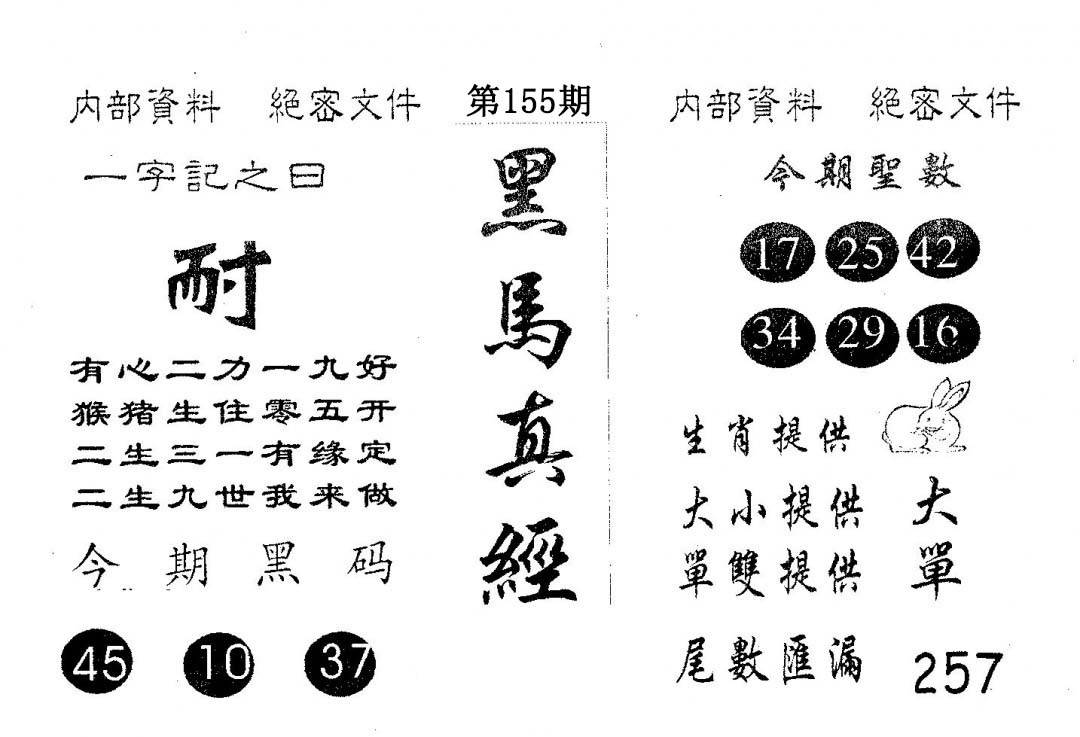 内部資料 絕密文件
一字記之曰
耐
有心二力一九好
猴猪生住零五开
二生三一有缘定
二生九世我来做
今期黑码
45 10 37
第155期
黑馬真經
内部資料 絕密文件
今期聖數
17 25 42
34 29 16
生肖提供
大小提供 大
單雙提供 單
尾數匯漏 257